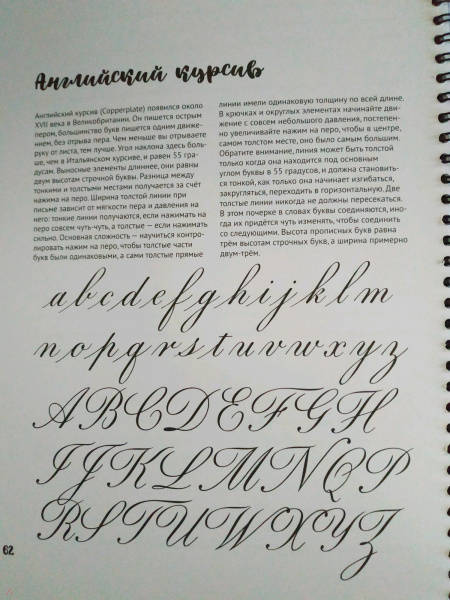 Английский курсив
Английский курсив (Copperplate) появился около
XVII века в Великобритании. Он пишется острым
пером, большинство букв пишется одним движе-
нием, без отрыва пера. Чем меньше вы отрываете
руку от листа, тем лучше. Угол наклона здесь боль-
ше, чем в Итальянском курсиве, и равен 55 гра-
дусам. Выносные элементы длиннее, они равны
двум высотам строчной буквы. Разница между
тонкими и толстыми местами получается за счёт
нажима на перо. Ширина толстой линии при
письме зависит от мягкости пера и давления на
него: тонкие линии получаются, если нажимать на
перо совсем чуть-чуть, а толстые — если нажимать
сильно. Основная сложность — научиться контро-
лировать нажим на перо, чтобы толстые части
букв были одинаковыми, а сами толстые прямые
линии имели одинаковую толщину по всей длине.
В крючках и округлых элементах начинайте дви-
жение с совсем небольшого давления, постепен-
но увеличивайте нажим на перо, чтобы в центре,
самом толстом месте, оно было самым большим.
Обратите внимание, линия может быть толстой
только когда она находится под основным
углом буквы в 55 градусов, и должна становить-
ся тонкой, как только она начинает изгибаться,
закругляться, переходить в горизонтальную. Две
толстые линии никогда не должны пересекаться.
В этом почерке в словах буквы соединяются, ино-
гда их придётся чуть изменять, чтобы соединить
со следующими. Высота прописных букв равна
трём высотам строчных букв, а ширина примерно
двум-трём.
a b c d e f g h i j k l m
n o p q r s t u v w x y z
A B C D E F G H
I J K L M N Q P
R S T U W X Y Z
62